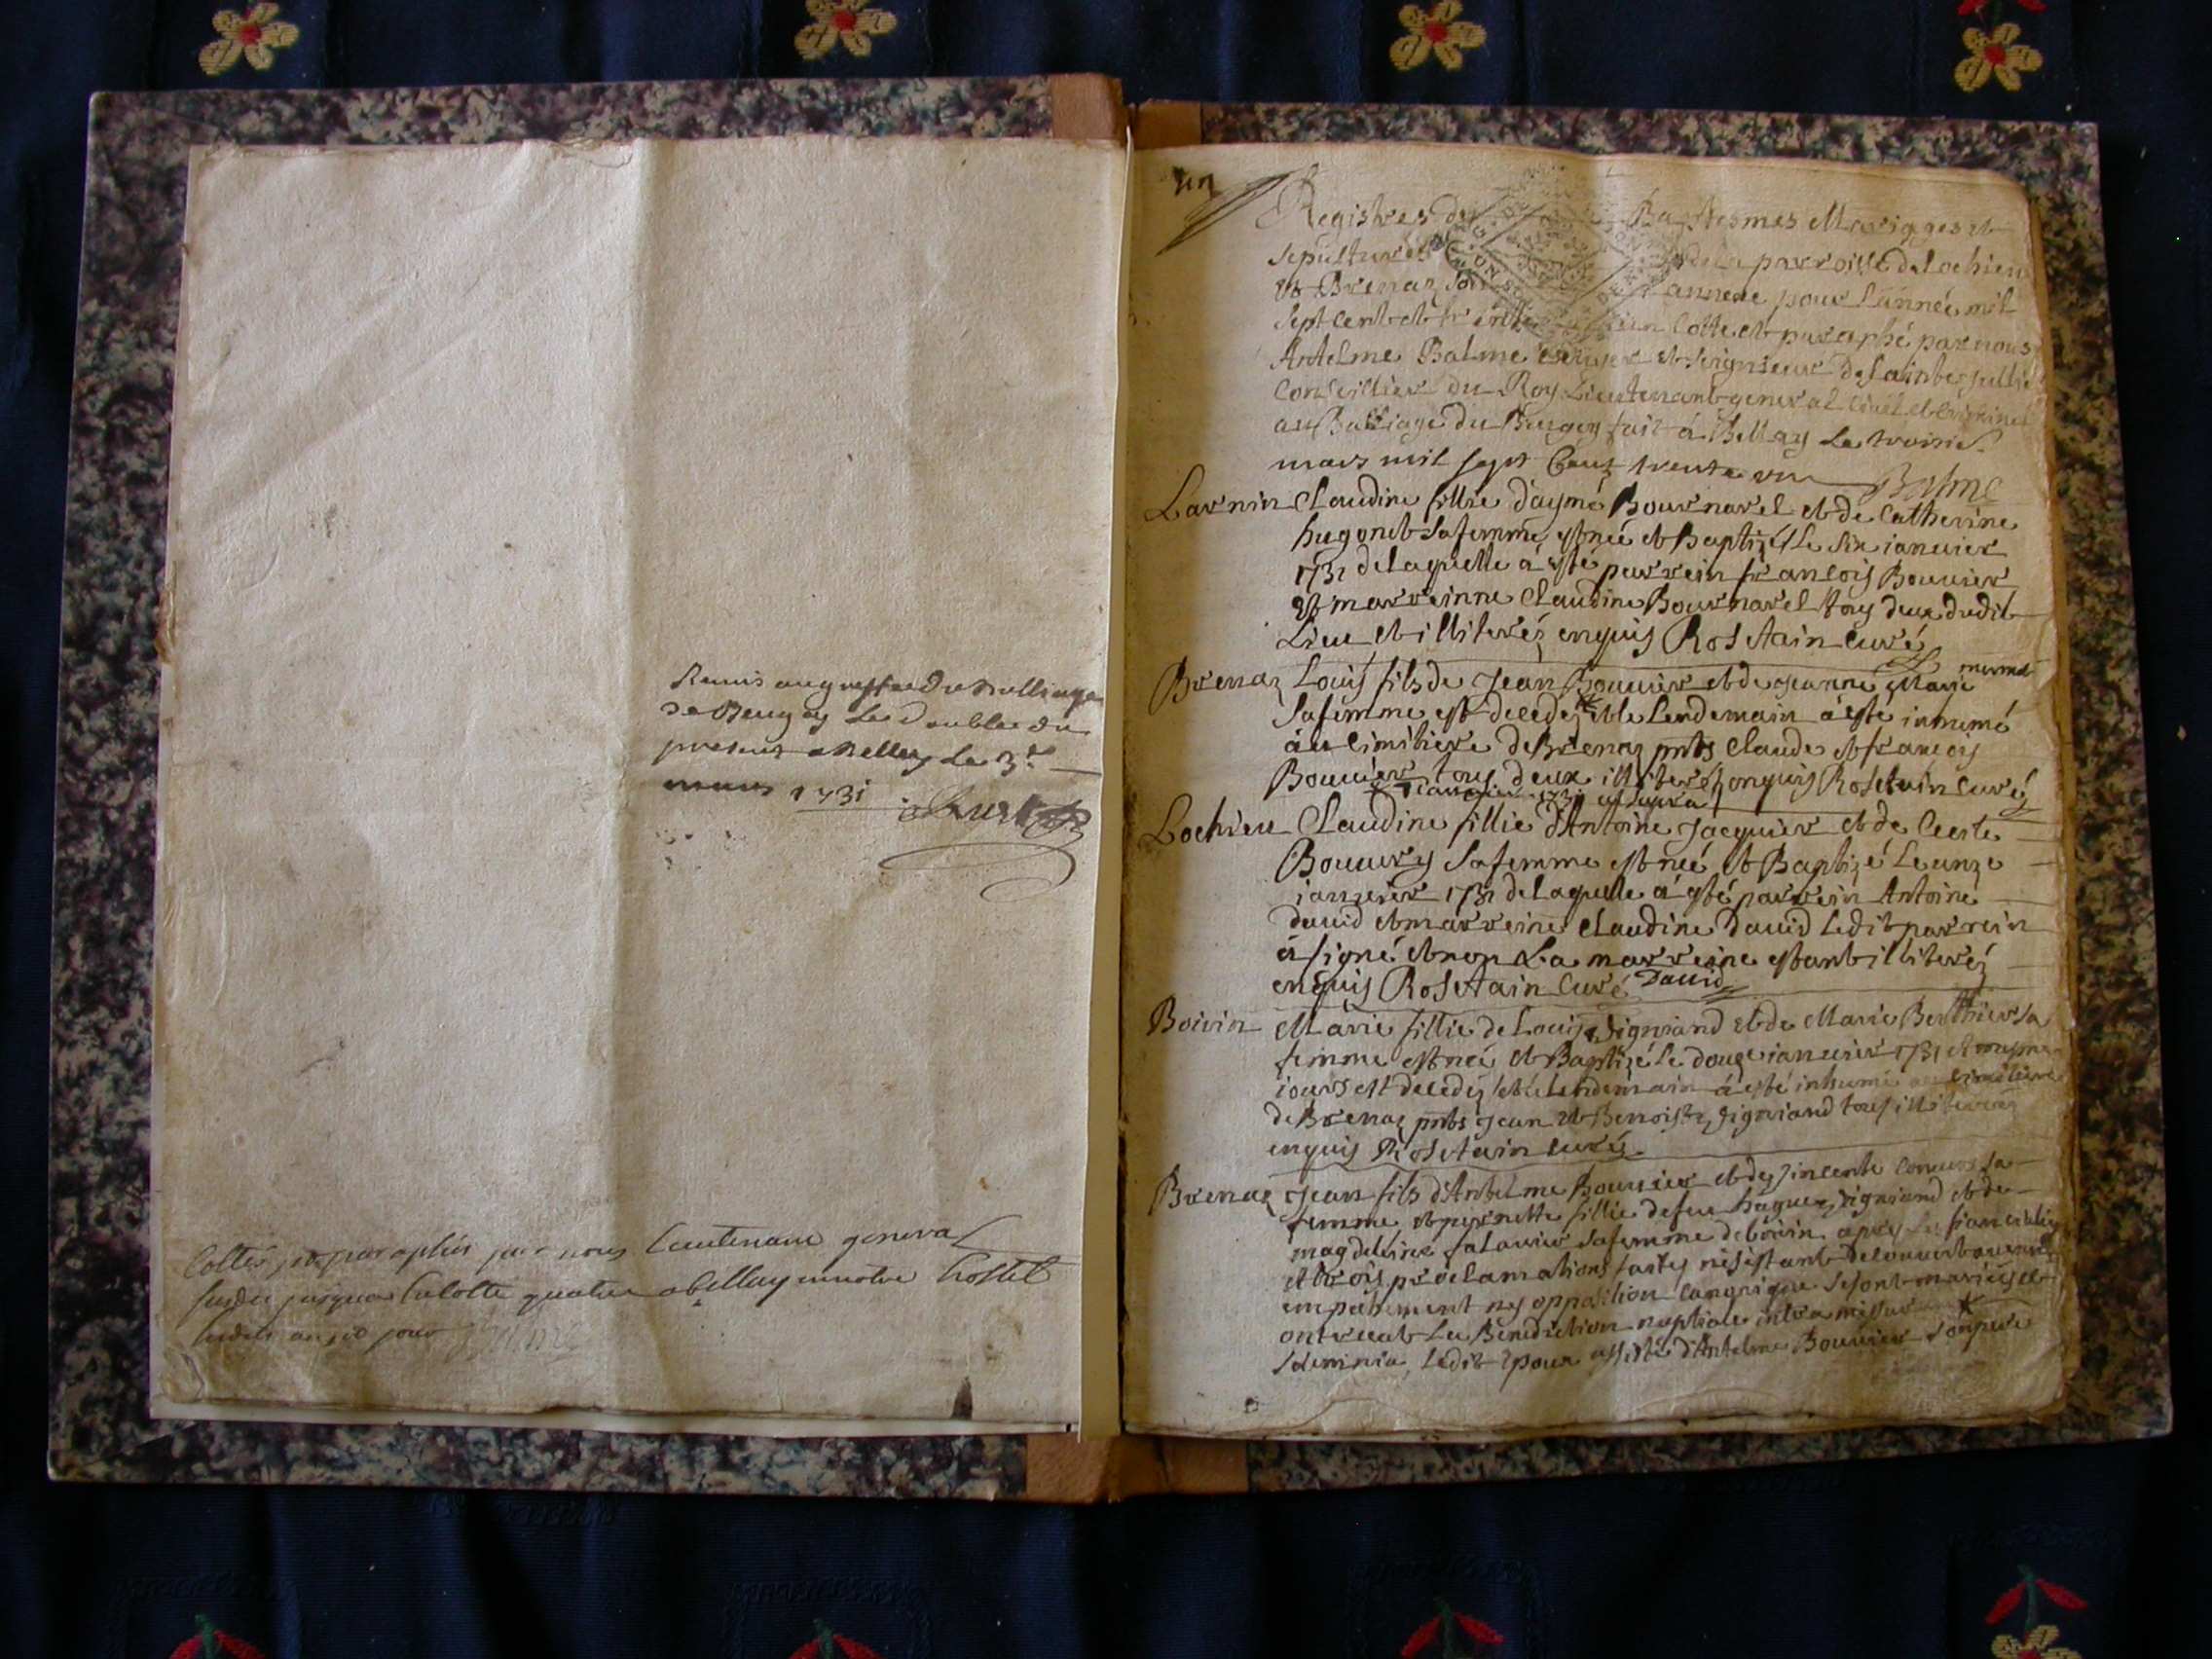 Remis au greffe du Balliage
de Beugey Le Double du
present a Belley Le 3e
mars 1731
Cottés et paraphés par nous Lieutenant general
susdit jusqua la Cotte quatre a Belley en notre hostel
lesdits an et jour
un
Registres de Baptesmes Mariages et
sepultures de la parroisse de Lochieu
et Brenaz son annexe pour L'année mil
sept cent et trente un Cotte et paraphé par nous
Antelme Balme escuyer et seigneur de Sainte Jullie
Conseillier du Roy Lieutenant general Civil et Criminel
au Balliage du Beugey fait á Belley Le troisie
mars mil sept Cent trente un Balme
Lavnin Claudine fillie d'aymé Bournarel et de Catherine
hugonet sa femme est neé et Baptizé Le six ianuier
1731 de Laquelle á esté parrein francois Bouuier
Et marreinne Claudine Bournarel tous deux dudit
Lieu et illiteréz enquis Rosetain Curé
Brenaz Louis fils de Jean Bouuier et de Jeanne Marie
sa femme est decedez * et le Lendemain á esté inhumé
áu Cimitiere de Brenaz pnts Claude et francois
Bouuier tous deux illiteréz enquis Rosetain Curé
Lochieu Claudine fillie d'Antoine Jacquier et de
Bouuery sa femme est neé et Baptizé Le unze
ianuier 1731 de Laquelle á esté parrein Antoine
Dauid et marreine Claudine Dauid Ledit parrein
á signé et non La marreine estant illiteréz
enquis Rosetain Curé Dauid
Boivin Marie fillie de Louis Vigniand et de Marie Berthier sa
femme est neé et Baptizé Le douze ianuier 1731 et mesme
iours est decedez et le Lendemain á esté inhumé au Cimitiere
de Brenaz pnts Jean et Benoist Vigniand tous illiterez
enquis Rosetain Curé
Brenaz Jean fils d'Antelme Bouuier et de Vincente sa
femme et pernette fillie de feu hugue Vigniand et de
magdeleine sa femme de boivin apres Les fianciallies
et trois proclamations faites nesestant decouvert aucun
empechement ny opposition Canonique se sont mariés et
ont receub La Benediction nuptiale intra missarum *
solemnia, Ledit Epoux assisté d'Antelme Bouuier son pere